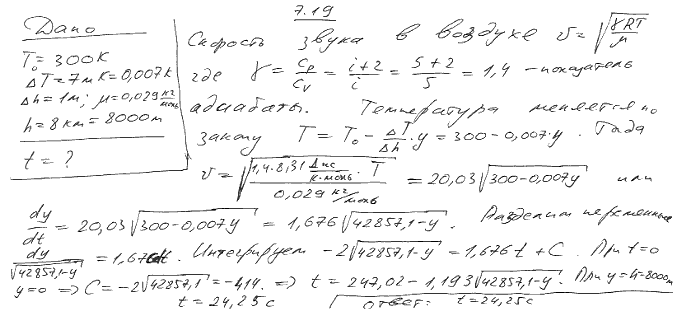 7.19
Дано
T₀ = 300K
ΔT = 7мK = 0,007K
Δh = 1м; μ = 0,029 кг/моль
h = 8 км = 8000м
t = ?
Скорость звука в воздухе v = √(γRT/μ)
где γ = Cp/Cv = (i+2)/i = (5+2)/5 = 1,4 - показатель
адиабаты. Температура меняется по
закону T = T₀ - ΔT/Δh · y = 300 - 0,007·y. Тогда
v = √(1,4·8,31 Дж/(К·моль) · T / 0,029 кг/моль) = 20,03√(300-0,007y) или
dy/dt = 20,03√(300-0,007y) = 1,676√(42857,1-y). Разделим переменные
dy/√(42857,1-y) = 1,676dt. Интегрируем -2√(42857,1-y) = 1,676t + C. При t=0
y=0 => C = -2√42857,1 = -414. => t = 247,02 - 1,193√(42857,1-y). При y=h=8000м
t = 24,25с
ответ: t = 24,25с